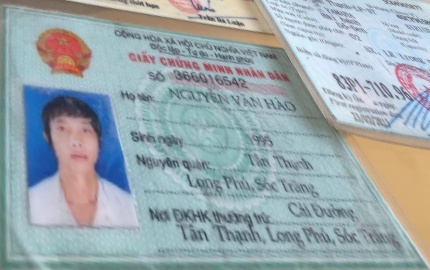 CỘNG HÒA XÃ HỘI CHỦ NGHĨA VIỆT NAM
Độc lập - Tự do - Hạnh phúc
GIẤY CHỨNG MINH NHÂN DÂN
SỐ 366016542
Họ tên: NGUYỄN VĂN HÀO
Sinh ngày 1995
Nguyên quán: Tân Thạnh
Long Phú, Sóc Trăng
Nơi ĐKHK thường trú: Cái Đường
Tân Thạnh, Long Phú, Sóc Trăng
83P1-110.96